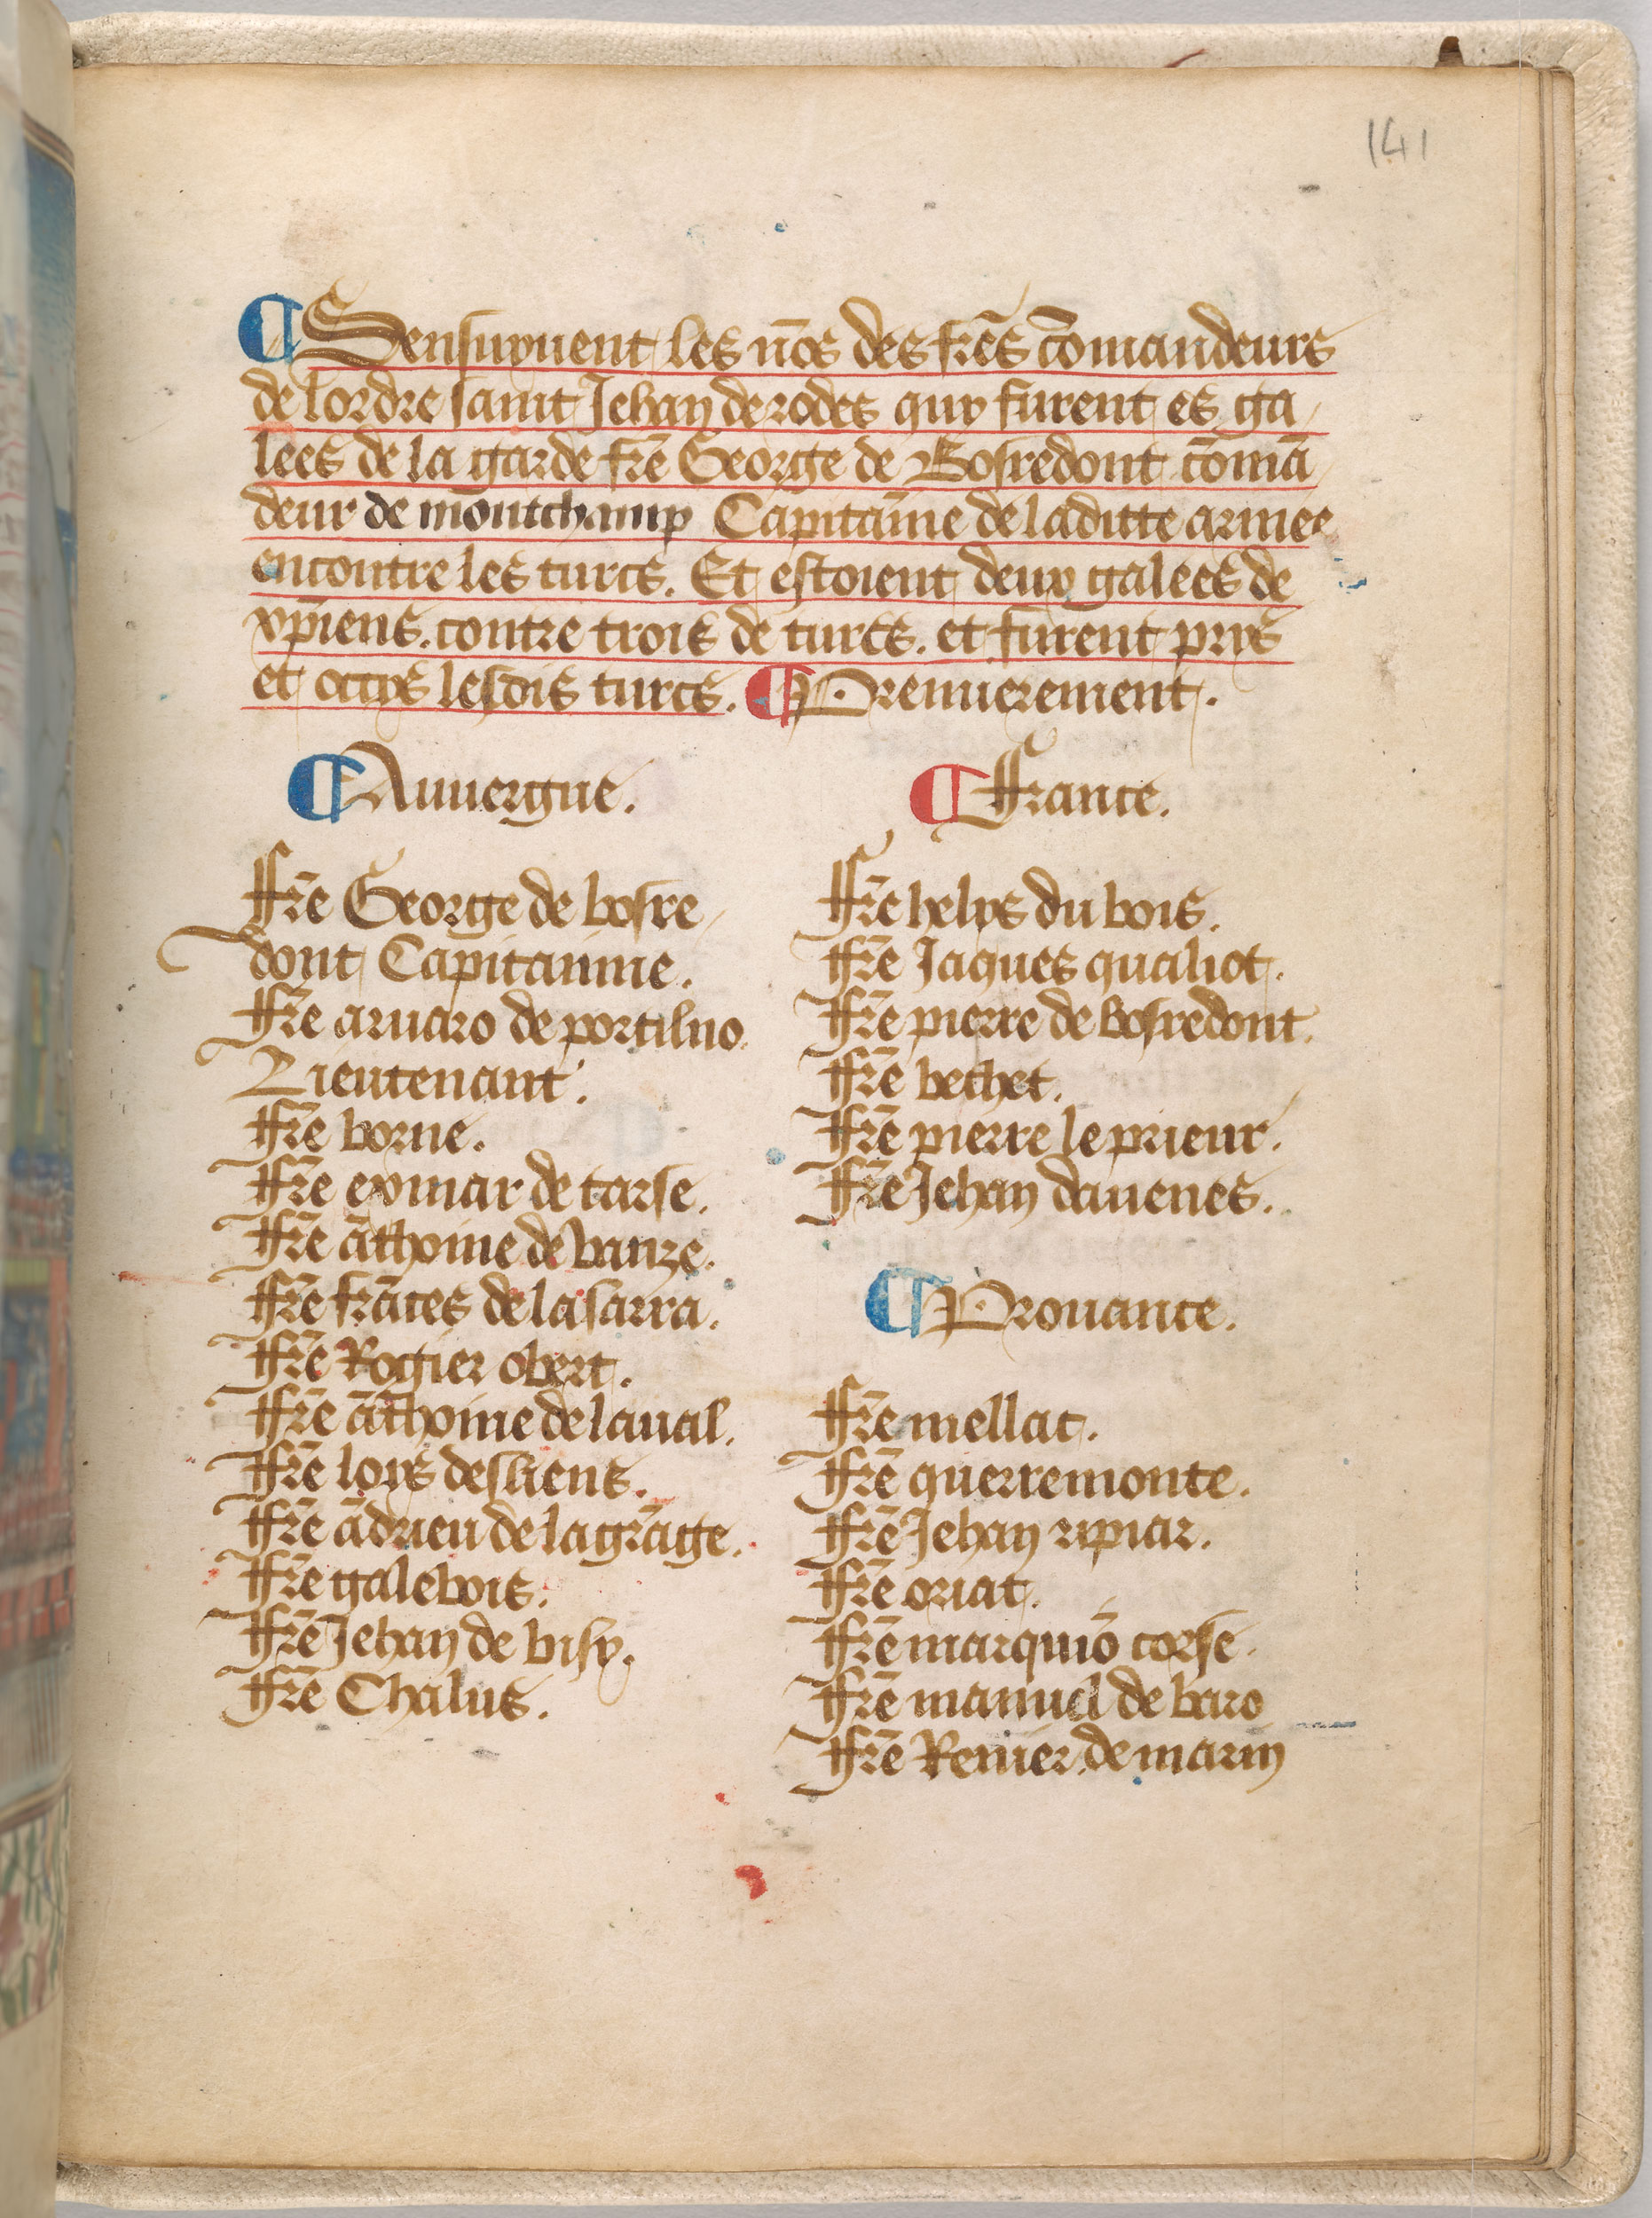 141
¶ Sensuyuent les nōs des frēs cōmandeurs
de lordre saint Jehan de rodes quy furent es ga
lees de la garde frē George de Bosredont cōmā
deur de mōntchamp Capitaīne de laditte armee
encontre les turcs. Et estoient deux galees de
xp̄iens. contre trois de turcs. et furent prys
et occys lesdis turcs. ¶ Premierement.
¶ Auuergne.
Frē George de bosre
dont Capitainne.
Frē aruaro de portilho
Lieutenant.
Frē borne.
Frē eymar de tarse.
Frē āthoine de vauze.
Frē frāces de la sarra.
Frē Rogier obert.
Frē āthoine de laual.
Frē loys desliens.
Frē ādrieu de la grāge.
Frē galebois.
Frē Jehan de visy.
Frē Chalus.
¶ France.
Frē helys du bois.
Frē Jaques qualiot.
Frē pierre de bosredont.
Frē bechet.
Frē pierre le prieur.
Frē Jehan dauenes.
¶ Prouance.
Frē mellac.
Frē querremonte.
Frē Jehan ripiar.
Frē oriat.
Frē marquiō corse.
Frē manuel de baro
Frē Renier de marin